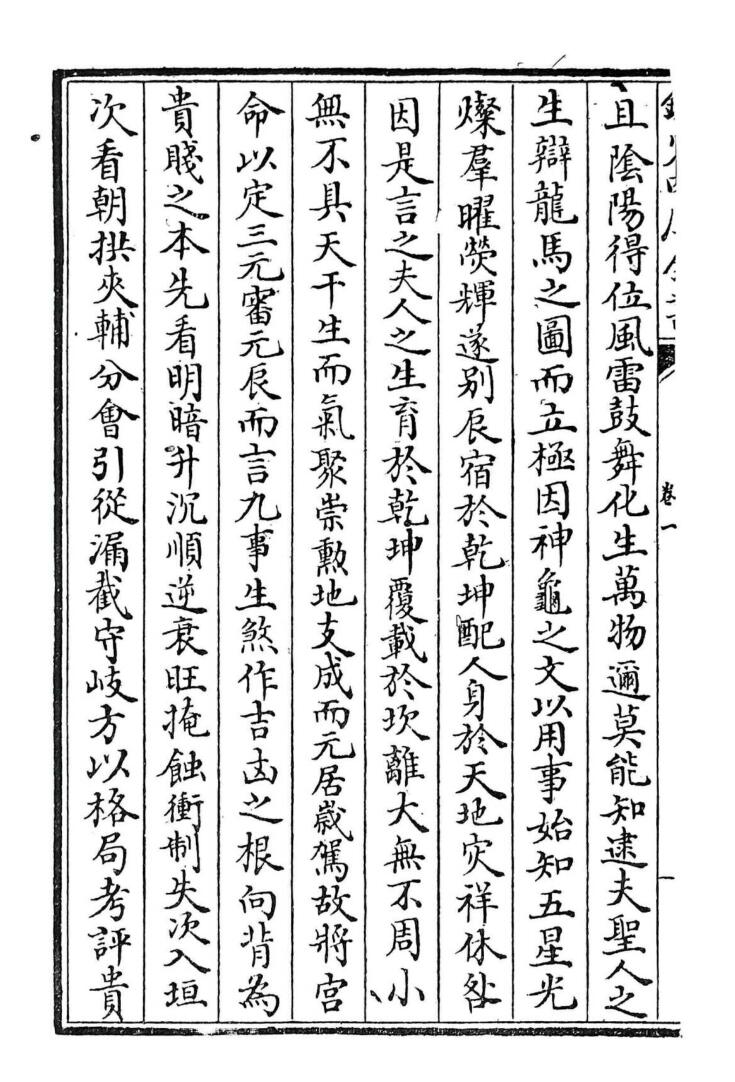 卷一
且陰陽得位風雷鼓舞化生萬物邇莫能知逮夫聖人之
生辯龍馬之圖而立極因神龜之文以用事始知五星光
燦羣曜熒輝遂别辰宿於乾坤配人身於天地灾祥休咎
因是言之夫人之生育於乾坤覆載於坎離大無不周小
無不具天干生而氣聚崇勲地支成而元居嵗駕故將宮
命以定三元審元辰而言九事生煞作吉凶之根向背為
貴賤之本先看明暗升沉順逆衰旺掩蝕衝制失次入垣
次看朝拱夾輔分會引從漏截守岐方以格局考評貴